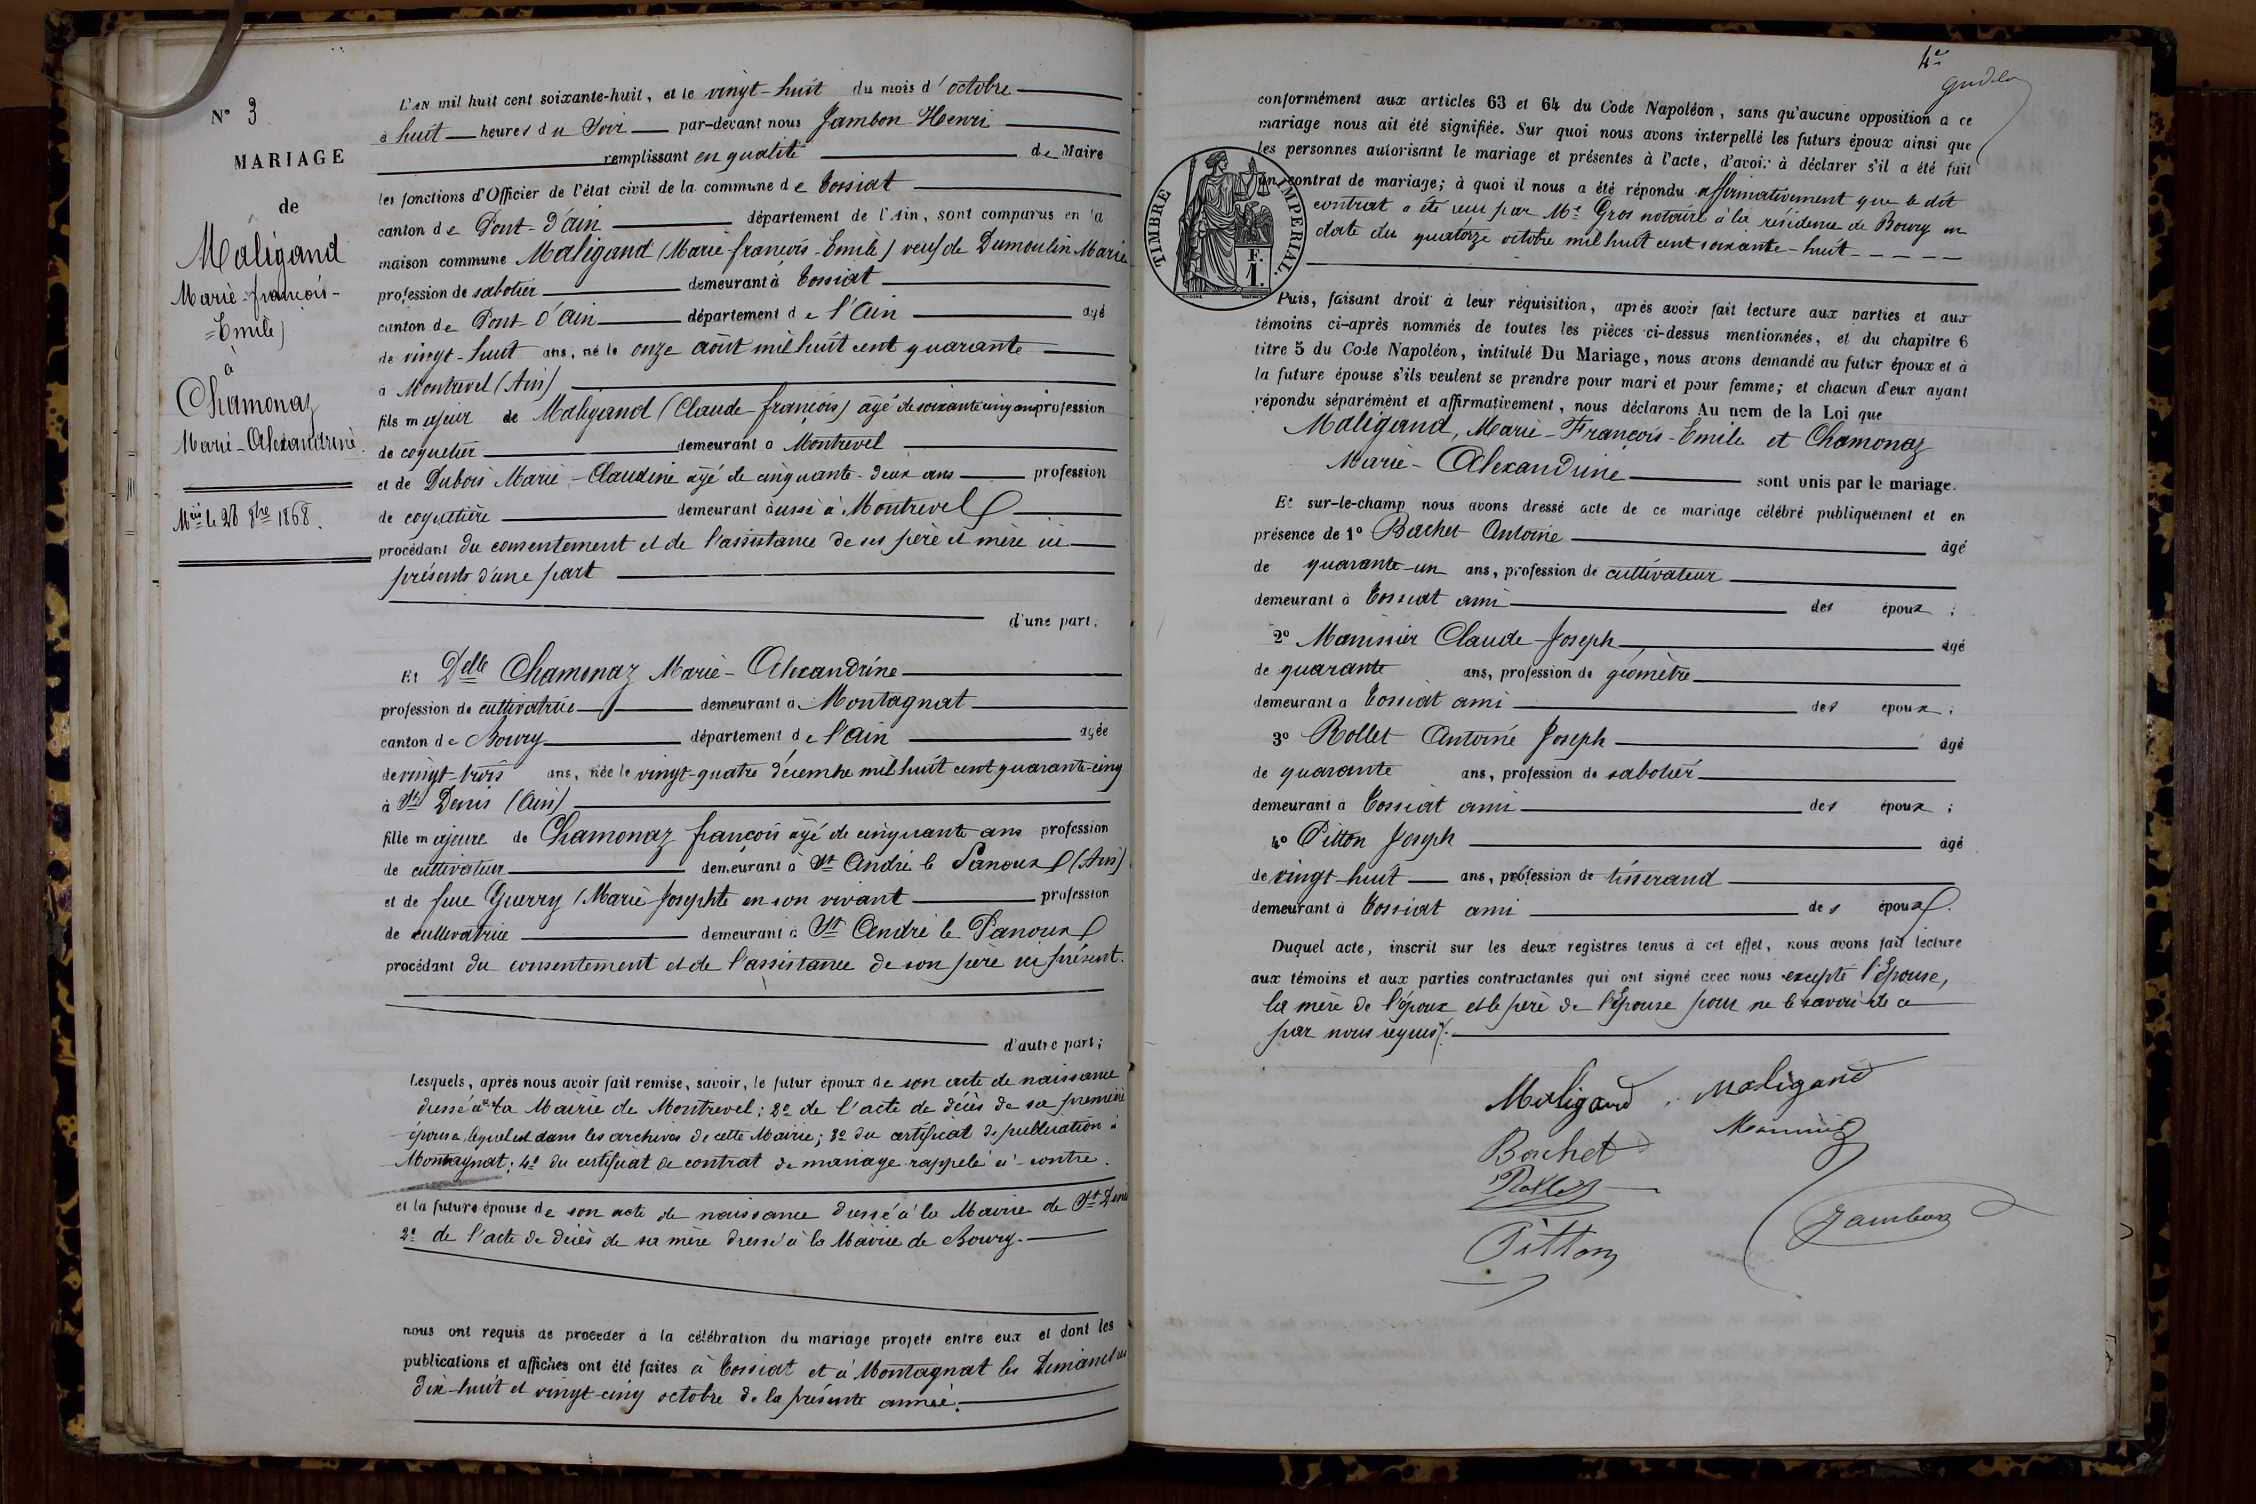 N° 3
MARIAGE
de
Maligand
Marie-françois-
=Emile)
à
Chamonaz
Marie-Alexandrine
le 28 8bre 1868.
L'AN mil huit cent soixante-huit, et le vingt-huit du mois d'octobre
à huit heures du Soir par-devant nous Jambon Henri
remplissant en qualité de Maire
les fonctions d'Officier de l'état civil de la commune de Tossiat
canton de Pont-d'ain département de l'Ain, sont comparus en la
maison commune Maligand (Marie françois-Emile) veuf de Dumoulin Marie
profession de sabotier demeurant à Tossiat
canton de Pont-d'Ain département de l'Ain âgé
de vingt-huit ans, né le onze août mil huit cent quarante
à Montrevel (Ain)
fils majeur de Maligand (Claude-françois) âgé de soixante cinq ans profession
de coquetier demeurant à Montrevel
et de Dubois Marie-Claudine âgé de cinquante-deux ans profession
de coquetière demeurant aussi à Montrevel
procédant du consentement et de l'assistance de ses père et mère ici
présents d'une part
d'une part.
Et Delle Chamonaz Marie-Alexandrine
profession de cultivatrice demeurant à Montagnat
canton de Bourg département de l'Ain âgée
de vingt-trois ans, née le vingt-quatre décembre mil huit cent quarante-cinq
à St Denis (Ain)
fille majeure de Chamonaz françois âgé de cinquante ans profession
de cultivateur demeurant à St André le Panoux (Ain)
et de feue Guerry (Marie Josephte en son vivant profession
de cultivatrice demeurant à St André le Panoux
procédant du consentement et de l'assistance de son père ici présent.
d'autre part;
Lesquels, après nous avoir fait remise, savoir, le futur époux de son acte de naissance
dressé à la Mairie de Montrevel; 2° de l'acte de décès de sa première
épouse, lequel est dans les archives de cette Mairie; 3° du certificat de publication à
Montagnat; 4° du certificat de contrat de mariage rappelé ci-contre.
et la future épouse de son acte de naissance dressé à la Mairie de St Denis
2° de l'acte de décès de sa mère dressé à la Mairie de Bourg.
nous ont requis de procéder à la célébration du mariage projeté entre eux et dont les
publications et affiches ont été faites à Tossiat et à Montagnat les Dimanches
dix-huit et vingt-cinq octobre de la présente année.
conformément aux articles 63 et 64 du Code Napoléon, sans qu'aucune opposition à ce
mariage nous ait été signifiée. Sur quoi nous avons interpellé les futurs époux ainsi que
les personnes autorisant le mariage et présentes à l'acte, d'avoir à déclarer s'il a été fait
un contrat de mariage; à quoi il nous a été répondu affirmativement que le dit
contrat a été reçu par Me Gros notaire à la résidence de Bourg en
date du quatorze octobre mil huit cent soixante-huit
TIMBRE IMPERIAL.
F.
1.
Puis, faisant droit à leur réquisition, après avoir fait lecture aux parties et aux
témoins ci-après nommés de toutes les pièces ci-dessus mentionnées, et du chapitre 6
titre 5 du Code Napoléon, intitulé Du Mariage, nous avons demandé au futur époux et à
la future épouse s'ils veulent se prendre pour mari et pour femme; et chacun d'eux ayant
répondu séparément et affirmativement, nous déclarons Au nom de la Loi que
Maligand, Marie-François-Emile et Chamonaz
Marie-Alexandrine sont unis par le mariage.
Et sur-le-champ nous avons dressé acte de ce mariage célébré publiquement et en
présence de 1° Bachet Antoine âgé
de quarante-un ans, profession de cultivateur
demeurant à Tossiat ami des époux;
2° Monnier Claude-Joseph âgé
de quarante ans, profession de géomètre
demeurant à Tossiat ami des époux;
3° Rollet Antoine Joseph âgé
de quarante ans, profession de sabotier
demeurant à Tossiat ami des époux;
4° Pitton Joseph âgé
de vingt-huit ans, profession de tisserand
demeurant à Tossiat ami des époux.
Duquel acte, inscrit sur les deux registres tenus à cet effet, nous avons fait lecture
aux témoins et aux parties contractantes qui ont signé avec nous excepté l'Epouse,
la mère de l'époux et le père de l'Epouse pour ne le savoir de ce
par nous requis.
Maligand. Maligand
Bachet Monnier
Rollet
Jambon
Pitton